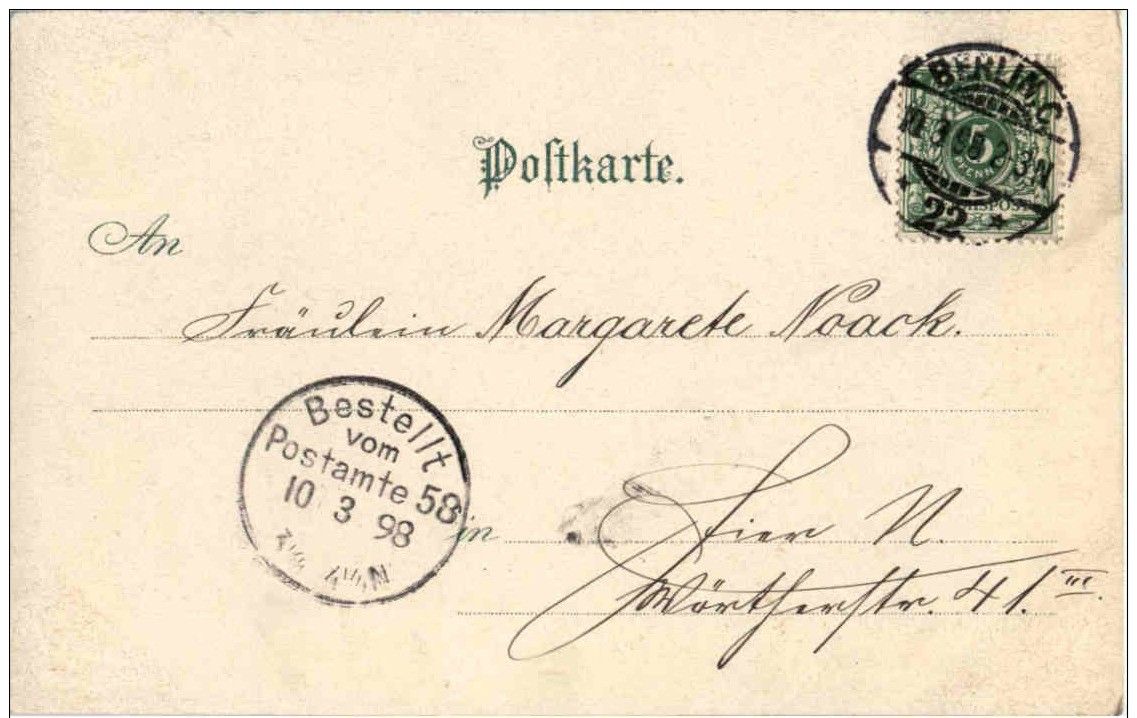 Postkarte.
BERLIN.C
10 3 98 2-3N
* 22 *
5
PFENNIG
REICHSPOST
An
Fräulein Margarete Noack.
Bestellt
vom
Postamte 58
10 3 98
N
in
Hier N.
Wörtherstr. 41. III.